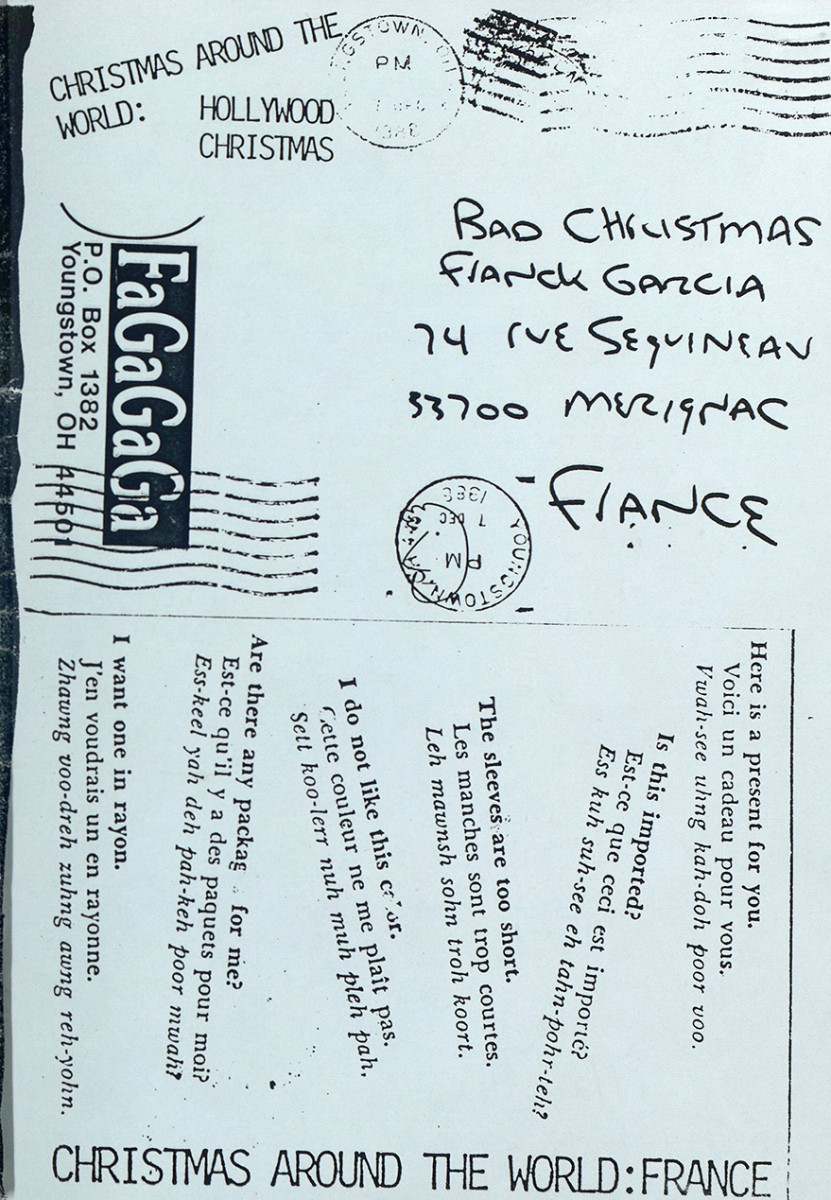 CHRISTMAS AROUND THE
WORLD: HOLLYWOOD
CHRISTMAS
PM
BAD CHRISTMAS
FRANCK GARCIA
74 RUE SEQUINEAU
33700 MERIGNAC
FRANCE
FaGaGaGa
P.O. Box 1382
Youngstown, OH 44501
YOUNGSTOWN,
PM
7 DEC
1988
Here is a present for you.
Voici un cadeau pour vous.
Vwah-see uhng kah-doh poor voo.
Is this imported?
Est-ce que ceci est importé?
Ess kuh suh-see eh tahn-pohr-teh?
The sleeves are too short.
Les manches sont trop courtes.
Leh mawnsh sohn troh koort.
I do not like this color.
Cette couleur ne me plaît pas.
Sett koo-lerr nuh muh pleh pah.
Are there any packag for me?
Est-ce qu'il y a des paquets pour moi?
Ess-keel yah deh pah-keh poor mwah?
I want one in rayon.
J'en voudrais un en rayonne.
Zhawng voo-dreh zuhng awng reh-yohn.
CHRISTMAS AROUND THE WORLD: FRANCE